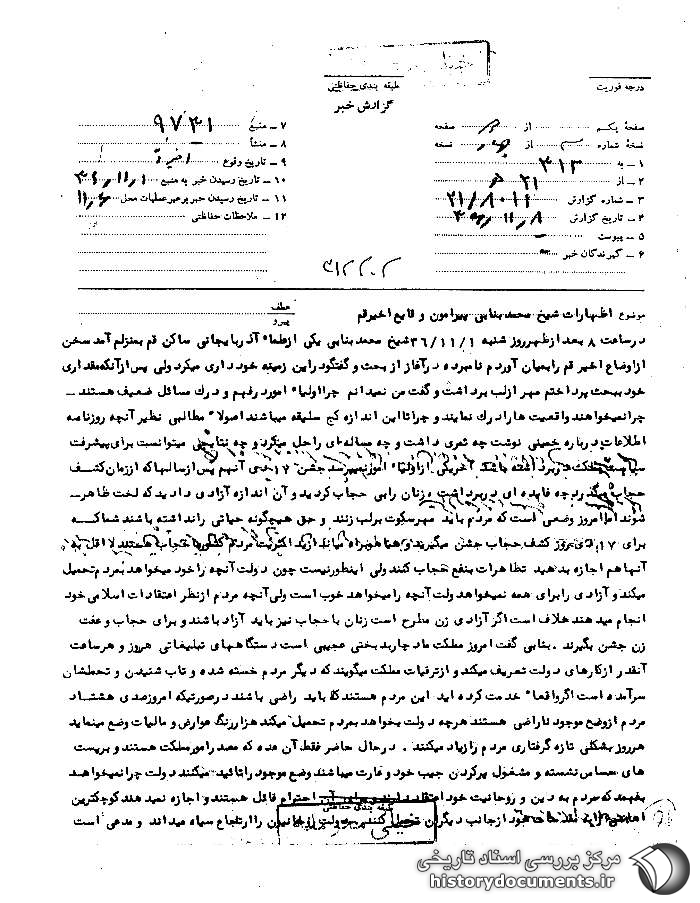 درجه فوریت
طبقه بندی حفاظتی
گزارش خبر
صفحهٔ یکم از صفحه
نسخهٔ شماره از نسخه
۱ ـ به ۳۱۳
۲ ـ از ۲۱ ﻫ
۳ ـ شماره گزارش ۲۱/۸۰۱۱
۴ ـ تاریخ گزارش ۳۶/۱۱/۸
۵ ـ پیوست
۶ ـ گیرندگان خبر
۷ ـ منبع ۹۷۳۱
۸ ـ منشأ
۹ ـ تاریخ وقوع اخیراً
۱۰ ـ تاریخ رسیدن خبر به منبع ۳۶/۱۱/۱
۱۱ ـ تاریخ رسیدن خبر برهبر عملیات محل ۱۱/۶
۱۲ ـ ملاحظات حفاظتی
موضوع اظهارات شیخ محمد بنابی پیرامون وقایع اخیر قم
عطف
پیرو
در ساعت ۸ بعد از ظهر روز شنبه ۳۶/۱۱/۱ شیخ محمد بنابی یکی از علماء آذربایجانی ساکن قم بمنزلم آمد سخن
از اوضاع اخیر قم را بمیان آوردم نامبرده در آغاز از بحث و گفتگو در این زمینه خود داری میکرد ولی پس از آنکه مقداری
خود ببحث پرداختم مهر از لب برداشت و گفت من نمیدانم چرا اولیاء امور در فهم و درک مسائل ضعیف هستند ـ
چرا نمیخواهند واقعیت ها را درک نمایند و چرا تا این اندازه کج سلیقه میباشند اصولاً مطالبی نظیر آنچه روزنامه
اطلاعات درباره خمینی نوشت چه ثمری داشت و چه مساله ای را حل میکرد و چه نتایجی میتوانست برای پیشرفت
مملکت در بر داشته باشد آخر یکی از اولیاء امور نمیپرسد جشن ۱۷ دی آنهم پس از سالها که از زمان کشف
حجاب میگذرد چه فایده ای در بر داشت . زنان را بی حجاب کردید و آن اندازه آزادی دادید که لخت ظاهر ـ
شوند اما امروز وضعی است که مردم باید مهر سکوت بر لب زنند و حق هیچگونه حیاتی را نداشته باشند شما که ـ
برای ۱۷ دی روز کشف حجاب جشن میگیرید اکثریت مردم کشور با حجاب هستند لااقل به
آنها هم اجازه بدهید تظاهرات بنفع حجاب کنند ولی اینطور نیست چون دولت آنچه را خود میخواهد بمردم تحمیل
میکند و آزادی را برای همه نمیخواهد دولت آنچه را میخواهد خوب است ولی آنچه مردم از نظر اعتقادات اسلامی خود
انجام میدهند خلاف است اگر آزادی زن مطرح است زنان با حجاب نیز باید آزاد باشند و برای حجاب و عفت
زن جشن بگیرند . بنابی گفت امروز مملکت ما دچار بدبختی عجیبی است دستگاههای تبلیغاتی هر روز و هر ساعت
آنقدر از کارهای دولت تعریف میکند و از ترقیات مملکت میگویند که دیگر مردم خسته شده و تاب شنیدن و تحملشان
سرآمده است اگر واقعاً خدمت کرده اید این مردم هستند که باید راضی باشند در صورتیکه امروز صدی هشتاد
مردم از وضع موجود ناراضی هستند هرچه دولت بخواهد بمردم تحمیل میکند هزار رنگ عوارض و مالیات وضع مینماید
هر روز بشکلی تازه گرفتاری مردم را زیاد میکنند . در حال حاضر فقط آن عده که مصدر امور مملکت هستند و بر پست
های حساس نشسته و مشغول پر کردن جیب خود و غارت میباشند وضع موجود را تائید میکنند دولت چرا نمیخواهد
بفهمد که مردم به دین و روحانیت خود اعتقاد دارند و برای آن احترام قائل هستند و اجازه نمیدهند کوچکترین
از جانب دیگران دولت روحانیون را ارتجاع سیاه میداند و مدعی است
طبقه بندی حفاظتی
خیلی محرمانه
مرکز بررسی اسناد تاریخی
historydocuments.ir